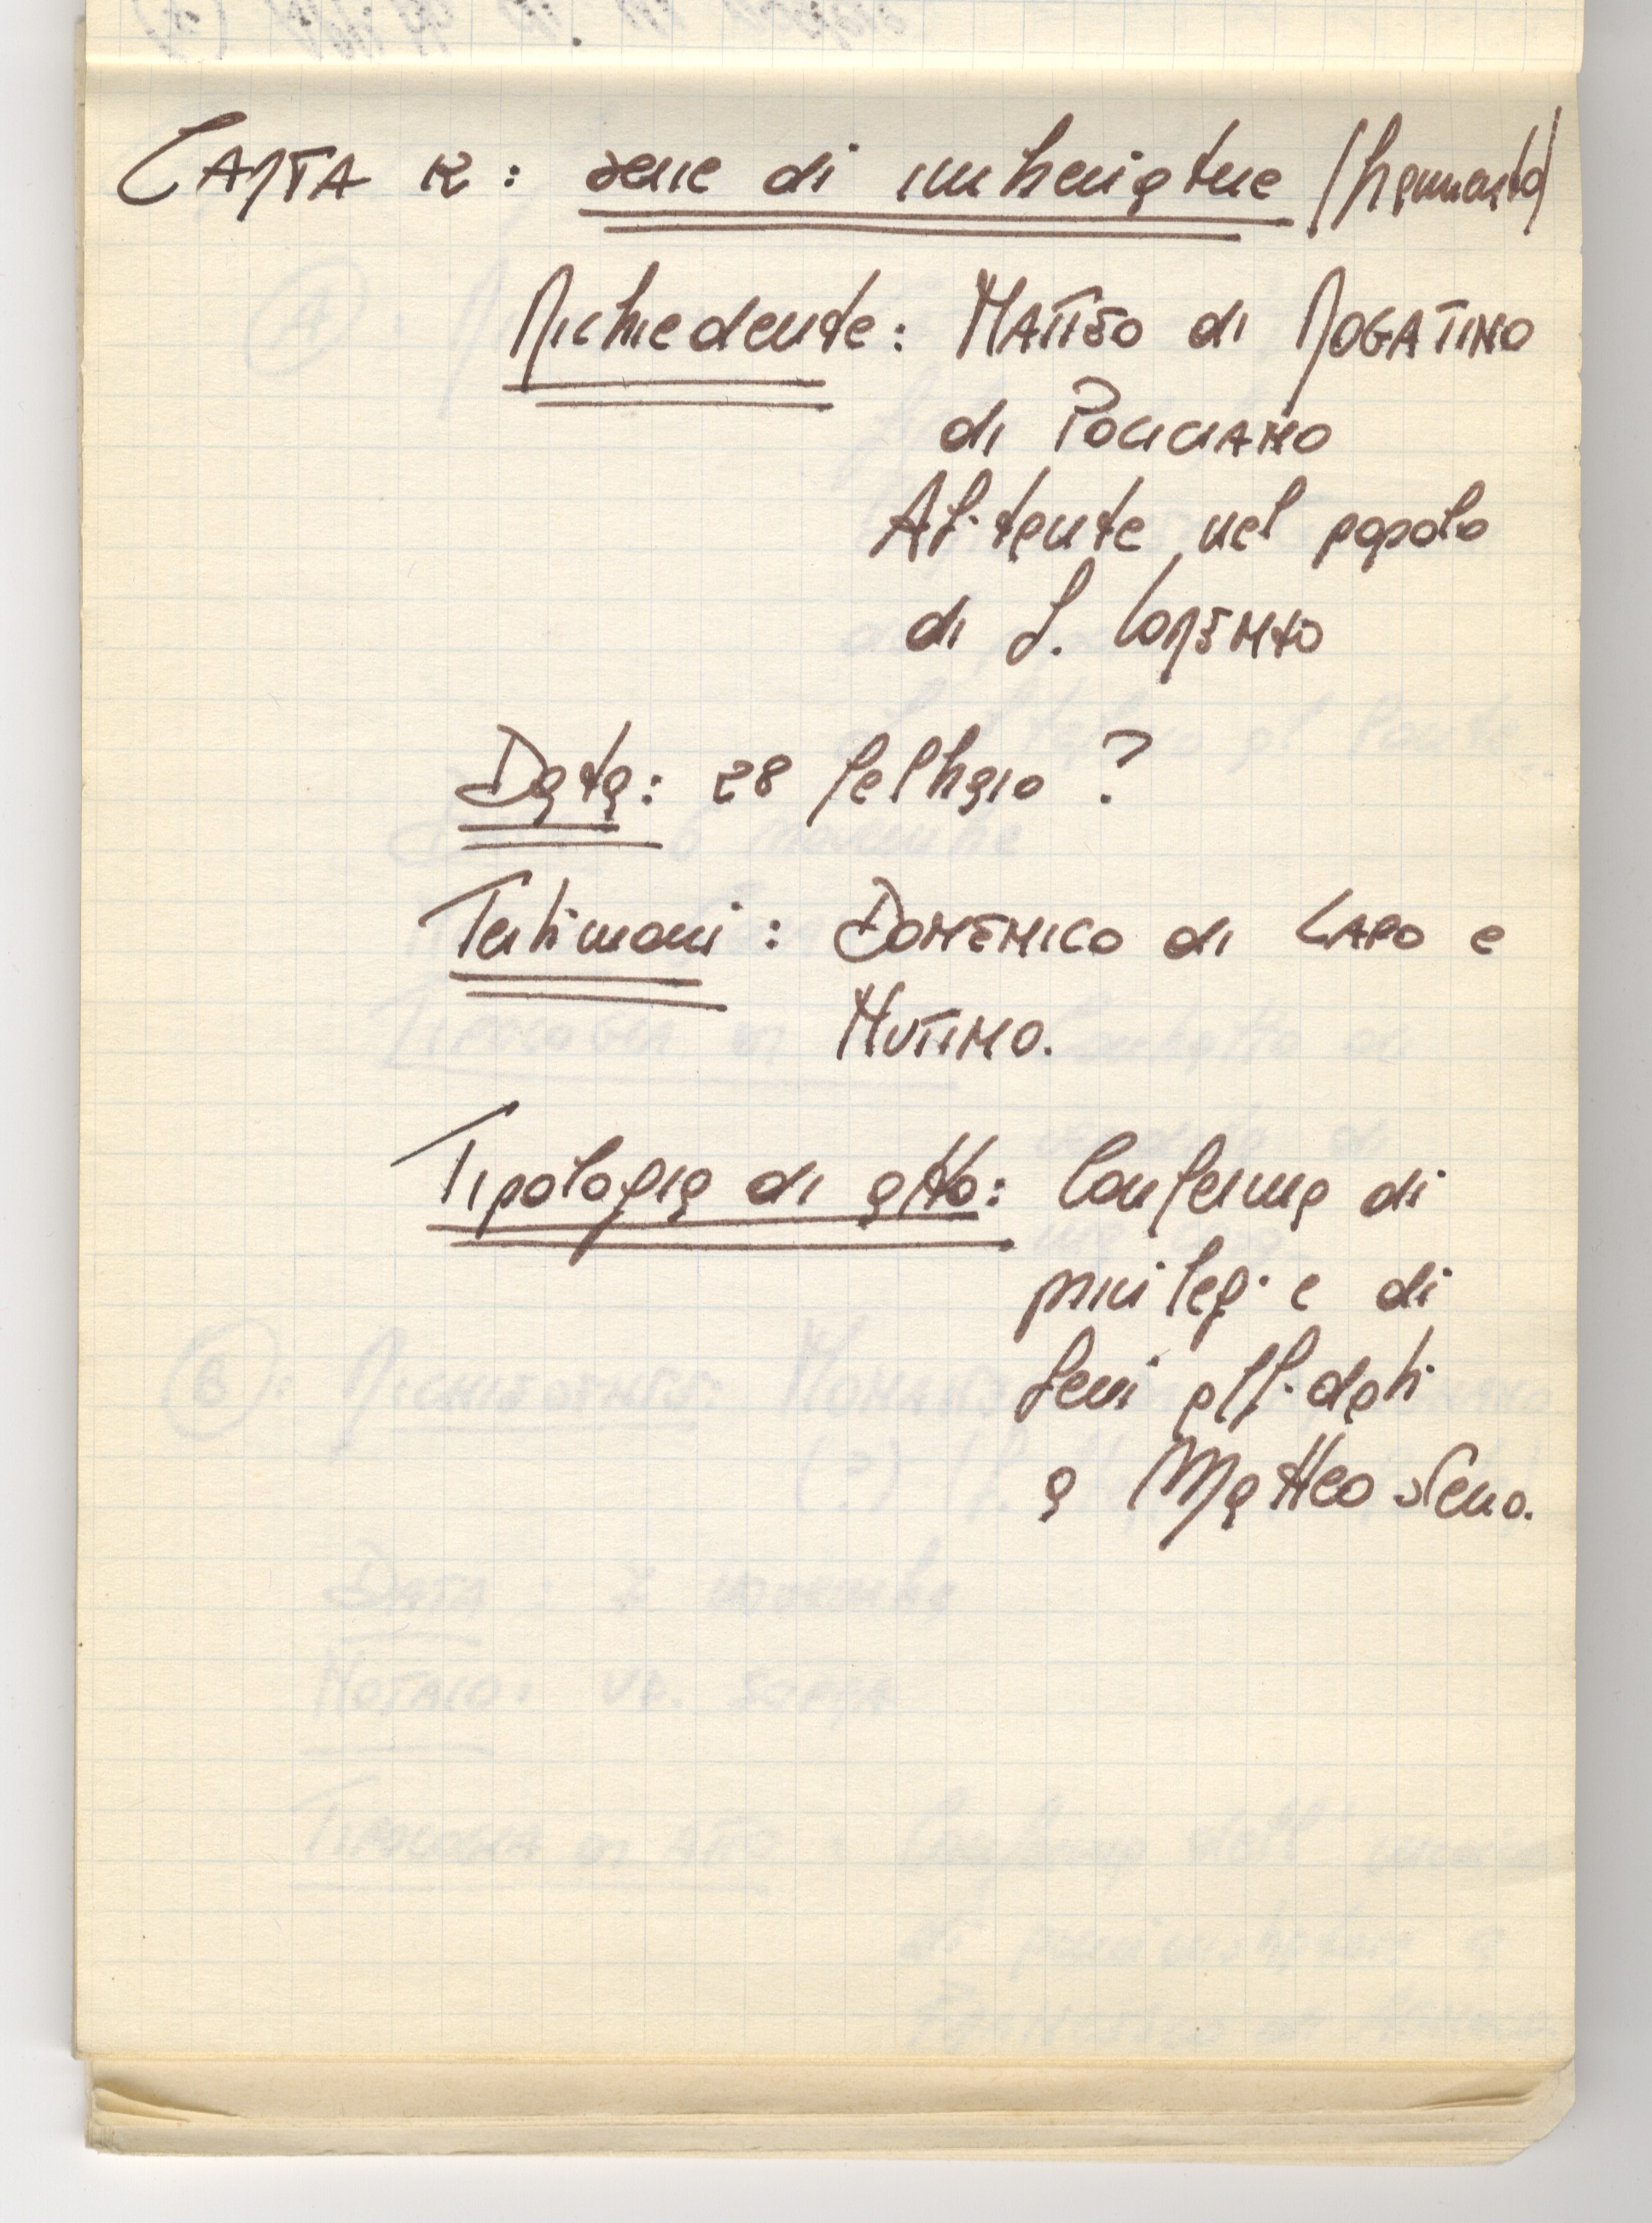 CARTA 12: serie di imbreviature (frammento)
Richiedente: MATTEO di ROGATINO
di POLICIANO
Abitante nel popolo
di S. LORENZO
Data: 28 febbraio ?
Testimoni: DOMENICO di LAPO e
NUTINO.
Tipologia di atto: Conferma di
privilegi e di
beni affidati
a Matteo stesso.